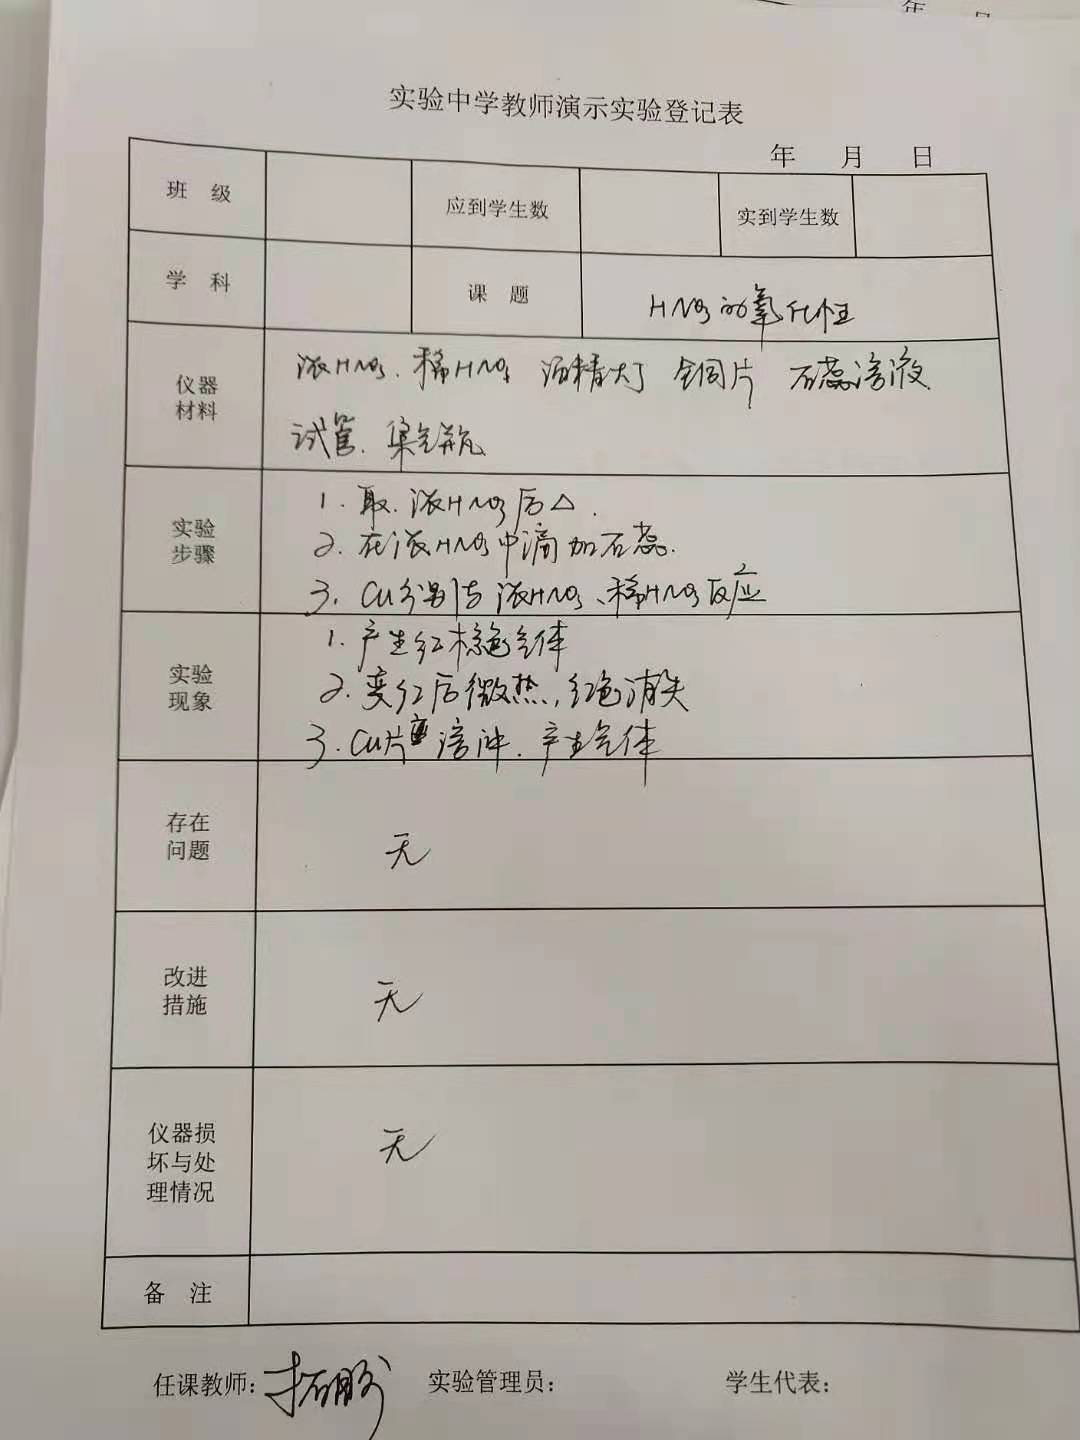 实验中学教师演示实验登记表
年 月 日
班 级 应到学生数 实到学生数
学 科 课 题 HNO3的氧化性
仪器材料
浓HNO3、稀HNO3 酒精灯 铜片 石蕊溶液
试管、集气瓶
实验步骤
1. 取浓HNO3后△.
2. 在浓HNO3中滴加石蕊.
3. Cu分别与浓HNO3、稀HNO3反应
实验现象
1. 产生红棕色气体
2. 变红后微热,红色消失
3. Cu片溶 . 产生气体
存在问题
无
改进措施
无
仪器损坏与处理情况
无
备 注
任课教师: 实验管理员: 学生代表: